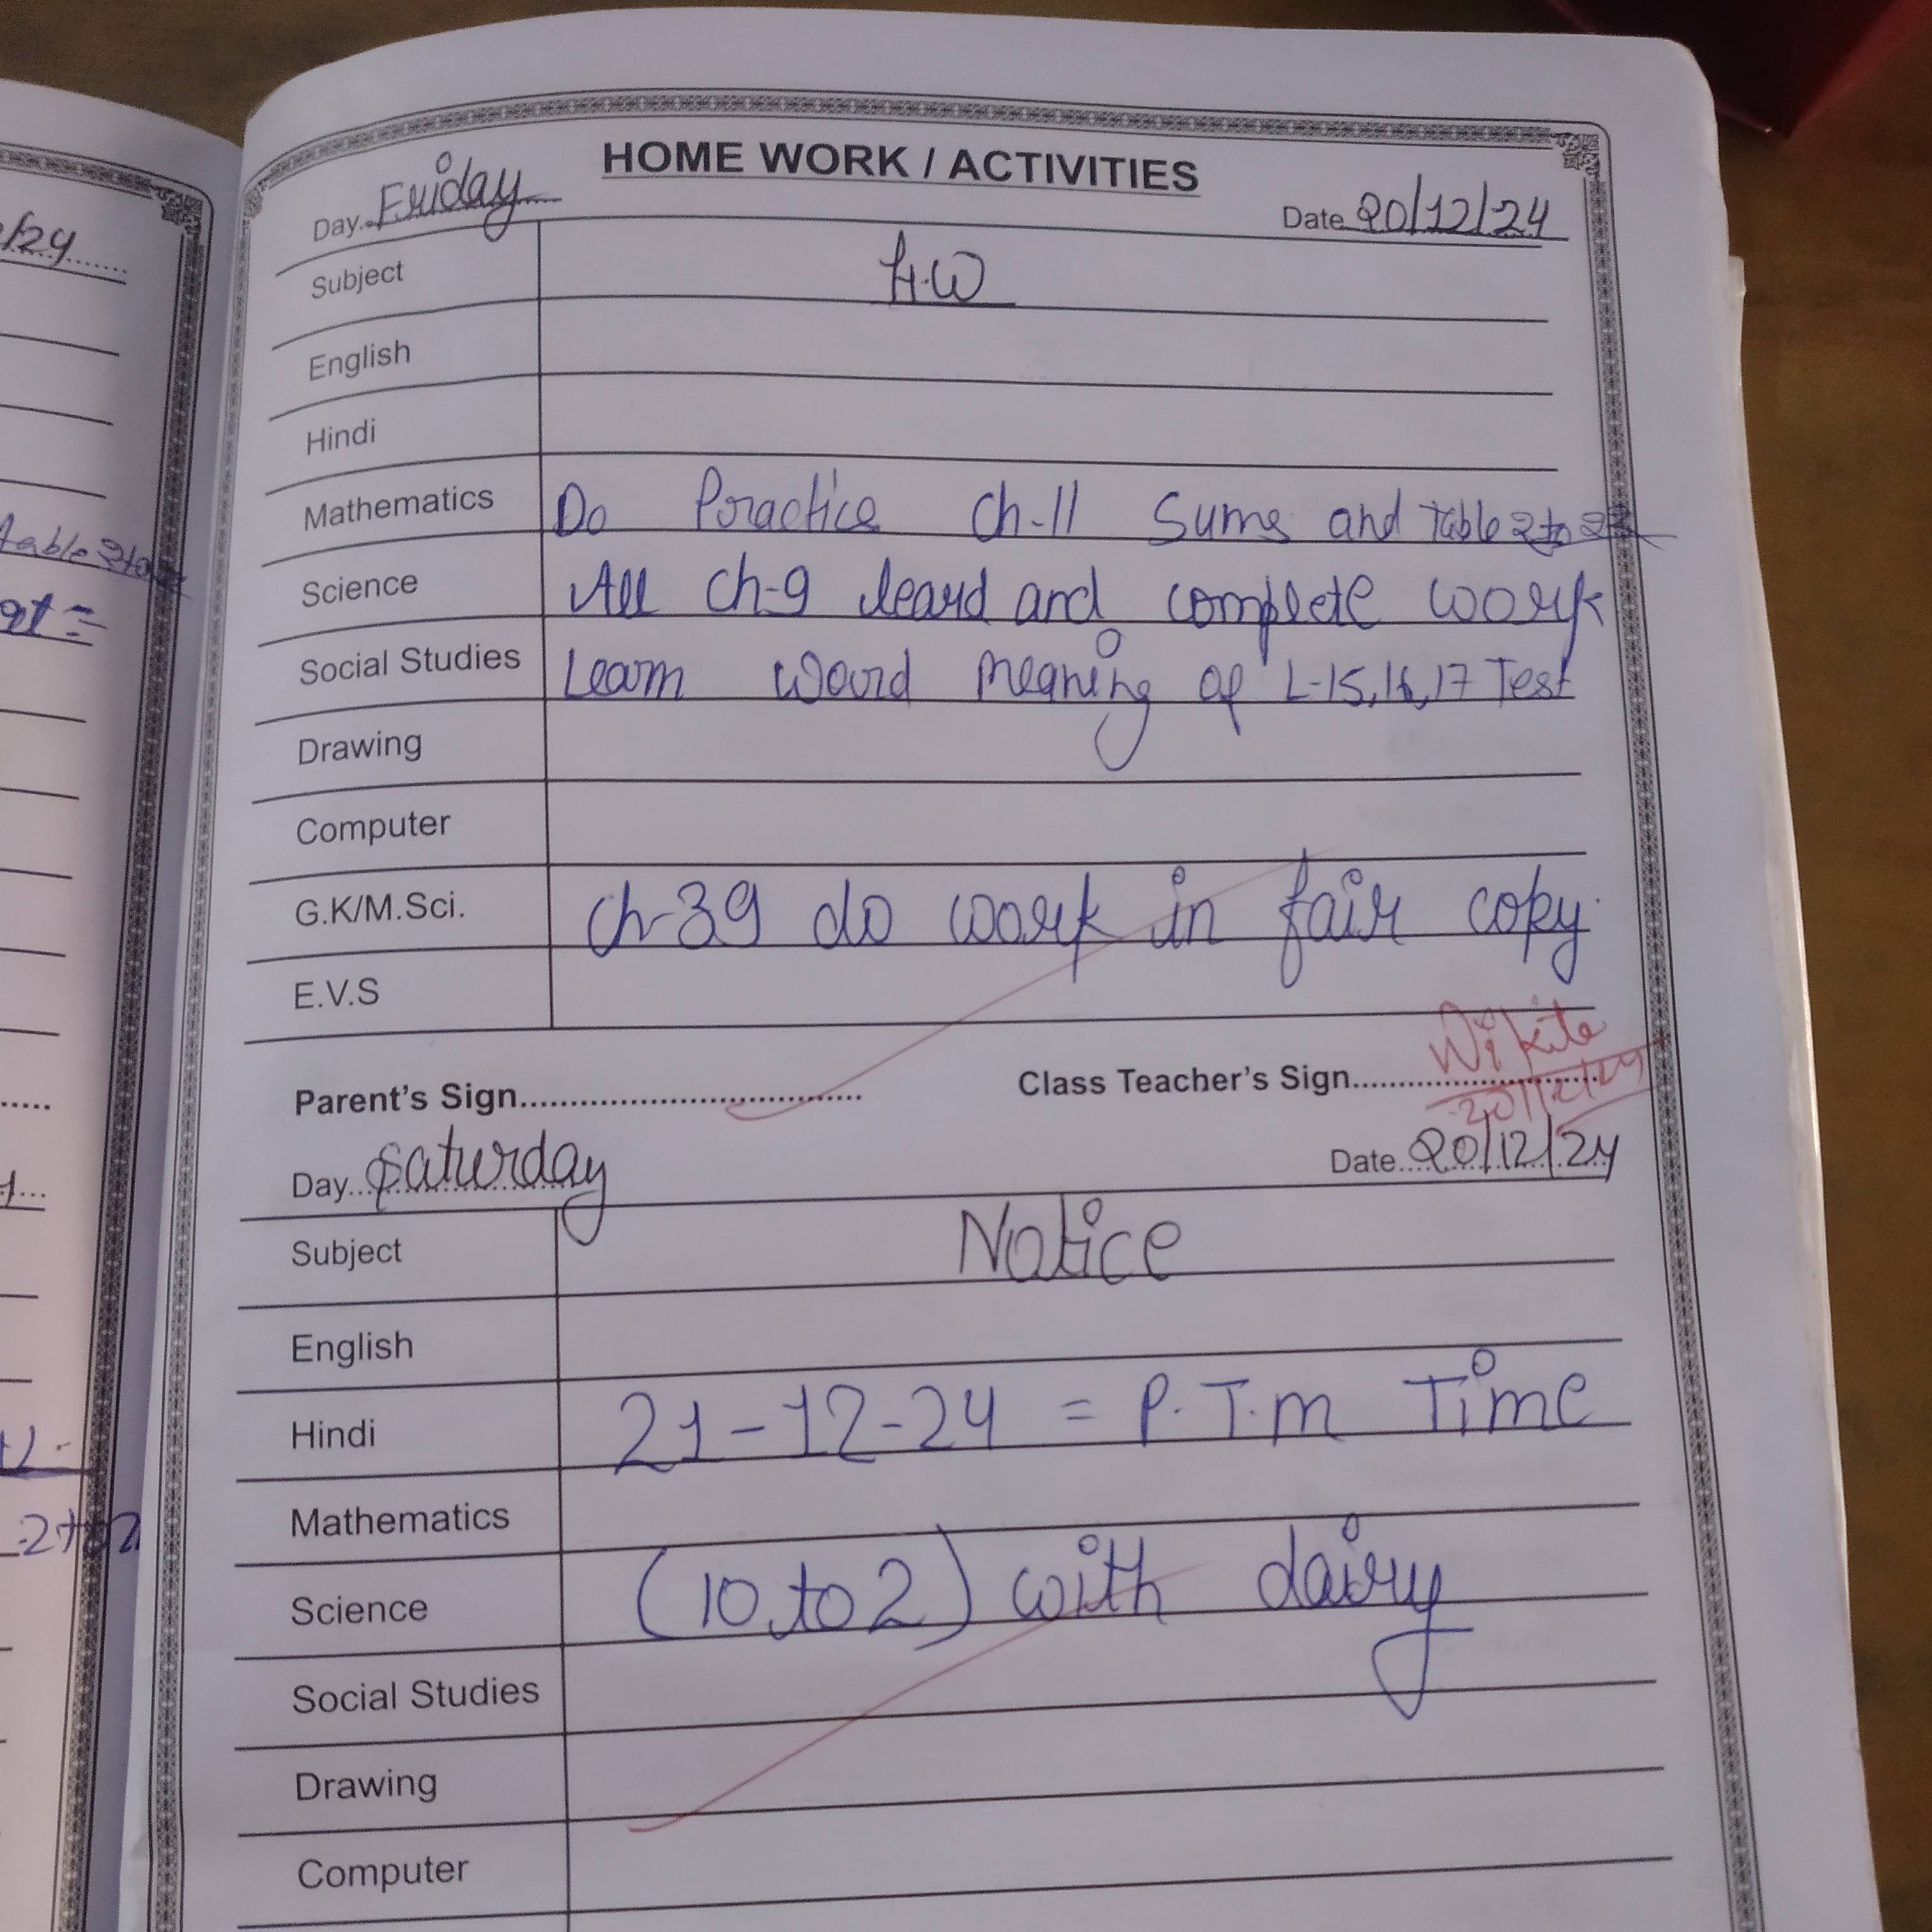 HOME WORK / ACTIVITIES
Day Friday Date 20/12/24
Subject H.W
English
Hindi
Mathematics Do Practice Ch-11 Sums and table 2 to
Science All Ch-9 leard and complete work
Social Studies Learn Word meaning of L-15,16,17 Test
Drawing
Computer
G.K/M.Sci. Ch-39 do work in fair copy.
E.V.S
Parent's Sign Class Teacher's Sign
20/12/24
Day Saturday Date 20/12/24
Subject Notice
English
Hindi 21-12-24 = P.T.m Time
Mathematics
Science (10 to 2) with dairy
Social Studies
Drawing
Computer
/24
table 2 to
2 to 2